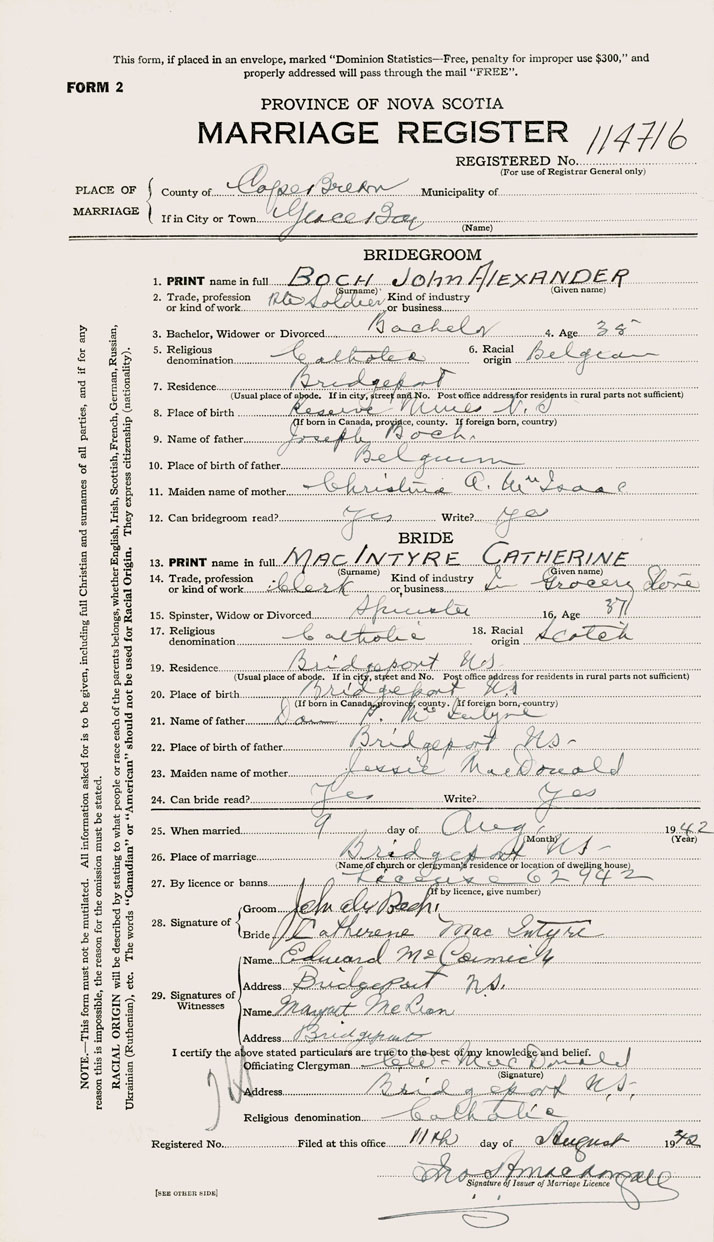 This form, if placed in an envelope, marked "Dominion Statistics—Free, penalty for improper use $300," and
properly addressed will pass through the mail "FREE".
FORM 2
PROVINCE OF NOVA SCOTIA
MARRIAGE REGISTER 114716
REGISTERED No.
(For use of Registrar General only)
PLACE OF MARRIAGE
County of Cape Breton Municipality of
If in City or Town Glace Bay
(Name)
BRIDEGROOM
1. PRINT name in full BOCH John Alexander
(Surname) (Given name)
2. Trade, profession or kind of work Pte Soldier Kind of industry or business
3. Bachelor, Widower or Divorced Bachelor 4. Age 38
5. Religious denomination Catholic 6. Racial origin Belgian
7. Residence Bridgeport
(Usual place of abode. If in city, street and No. Post office address for residents in rural parts not sufficient)
8. Place of birth Reserve Mines N.S
(If born in Canada, province, county. If foreign born, country)
9. Name of father Joseph Boch.
10. Place of birth of father Belguim
11. Maiden name of mother Christina A. McIsaac
12. Can bridegroom read? Yes Write? Yes
BRIDE
13. PRINT name in full MACINTYRE CATHERINE
(Surname) (Given name)
14. Trade, profession or kind of work Clerk Kind of industry or business In Grocery Store
15. Spinster, Widow or Divorced Spinster 16. Age 37
17. Religious denomination Catholic 18. Racial origin Scotch
19. Residence Bridgeport N.S.
(Usual place of abode. If in city, street and No. Post office address for residents in rural parts not sufficient)
20. Place of birth Bridgeport N.S
(If born in Canada, province, county. If foreign born, country)
21. Name of father Dan P. McIntyre
22. Place of birth of father Bridgeport NS-
23. Maiden name of mother Jessie MacDonald
24. Can bride read? Yes Write? Yes
25. When married 9 day of Aug. 1942
(Month) (Year)
26. Place of marriage Bridgeport NS-
(Name of church or clergyman's residence or location of dwelling house)
27. By licence or banns License 62942
(If by licence, give number)
28. Signature of
Groom John Alex Boch
Bride Catherene MacIntyre
29. Signatures of Witnesses
Name Edward McCormick
Address Bridgeport N.S.
Name Margaret McLean
Address Bridgeport
I certify the above stated particulars are true to the best of my knowledge and belief.
Officiating Clergyman MacDonald
(Signature)
Address Bridgeport N.S.
Religious denomination Catholic
Registered No. Filed at this office 11th day of August 1942
Jno
Signature of Issuer of Marriage Licence
[SEE OTHER SIDE]
NOTE.—This form must not be mutilated. All information asked for is to be given, including full Christian and surnames of all parties, and if for any
reason this is impossible, the reason for the omission must be stated.
RACIAL ORIGIN will be described by stating to what people or race each of the parents belongs, whether English, Irish, Scottish, French, German, Russian,
Ukrainian (Ruthenian), etc. The words "Canadian" or "American" should not be used for Racial Origin. They express citizenship (nationality).